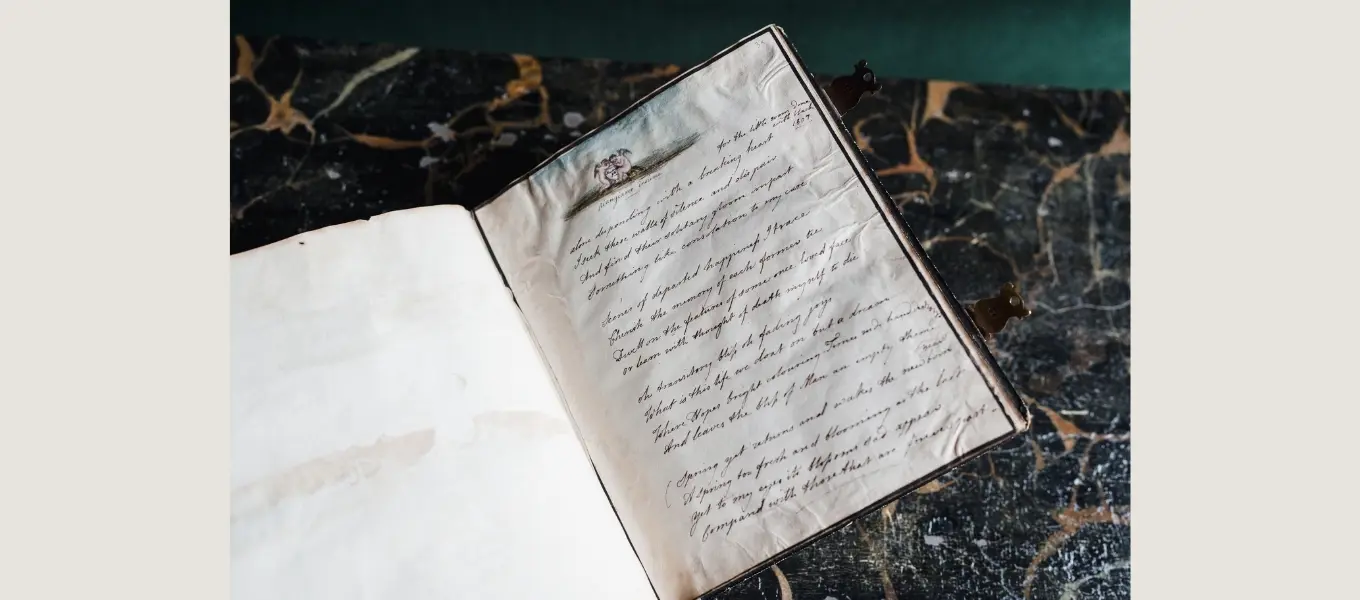 for the little
with
1809.
alone desponding with a breaking heart
I seek these walls of silence and dispair
And find their solitary gloom impart
Something like consolation to my care
Scenes of departed happinefs I trace
Cherish the memory of each former tie
Dwell on the features of some once loved face
or learn with thought of death myself to die
oh transitory blifs oh fading joys
What is this life we doat on but a dream
Where Hopes bright colouring Times rude hand
And leaves the blifs of Man an empty theme
Spring yet returns and wakes the
A spring too fresh and blooming as the last
yet to my eyes its blofsoms sad appear
Compar'd with those that are for ever past -